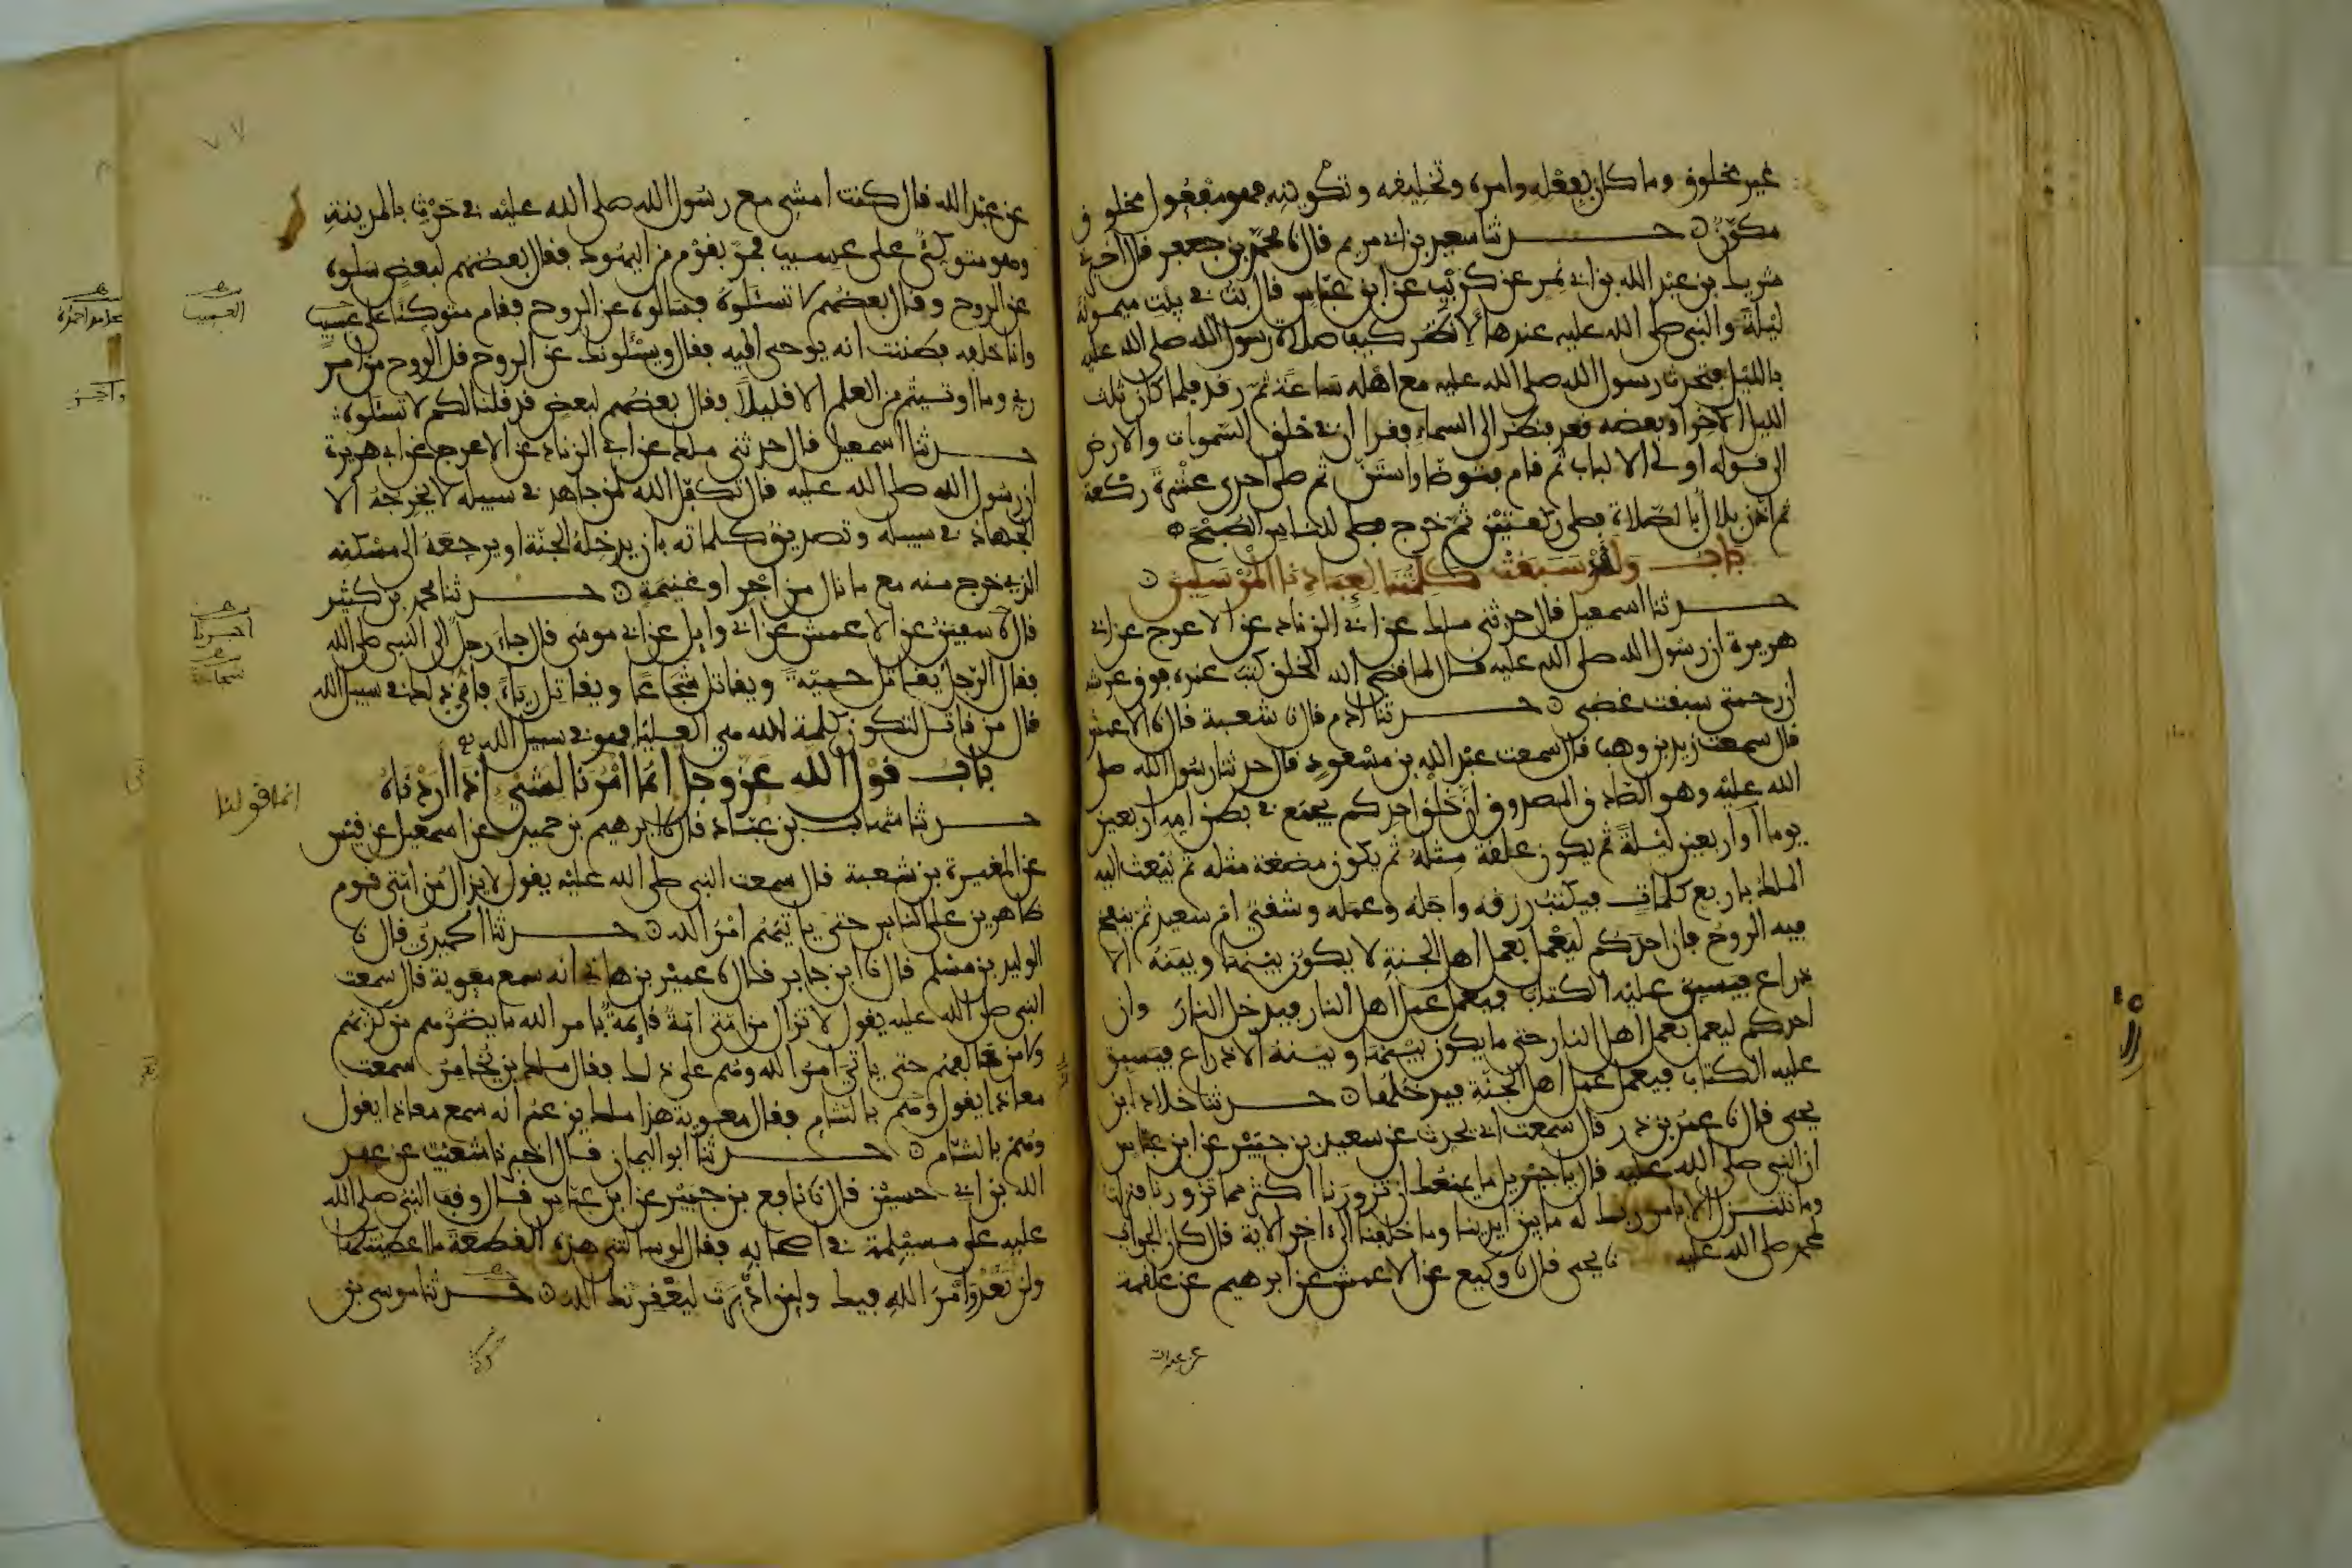 غير مخلوق وما كان بفعله وامره وتخليقه وتكوينه فهو مفعول مخلوق
مكوّن حدثنا سعيد بن ابي مريم قال نا محمد بن جعفر قال اخبرني
شريك بن عبد الله بن ابي نمر عن كريب عن ابن عباس قال بت في بيت ميمونة
ليلة والنبي صلى الله عليه عندها لانظر كيف صلاة رسول الله صلى الله عليه
بالليل فتحدث رسول الله صلى الله عليه مع اهله ساعة ثم رقد فلما كان ثلث
الليل الاخر او بعضه قعد فنظر الى السماء فقرا ان في خلق السموات والارض
الى قوله اولي الالباب ثم قام فتوضا واستن ثم صلى احدى عشرة ركعة
ثم اذن بلال بالصلاة فصلى ركعتين ثم خرج فصلى للناس الصبح
باب ولقد سبقت كلمتنا لعبادنا المرسلين
حدثنا اسمعيل قال حدثني ملك عن ابي الزناد عن الاعرج عن ابي
هريرة ان رسول الله صلى الله عليه قال لما قضى الله الخلق كتب عنده فوق عرشه
ان رحمتي سبقت غضبي حدثنا ادم قال نا شعبة قال نا الاعمش
قال سمعت زيد بن وهب قال سمعت عبد الله بن مسعود قال حدثنا رسول الله صلى
الله عليه وهو الصادق المصدوق ان خلق احدكم يجمع في بطن امه اربعين
يوما او اربعين ليلة ثم يكون علقة مثله ثم يكون مضغة مثله ثم يبعث اليه
الملك باربع كلمات فيكتب رزقه واجله وعمله وشقي ام سعيد ثم ينفخ
فيه الروح فان احدكم ليعمل بعمل اهل الجنة لا يكون بينها وبينه الا
ذراع فيسبق عليه الكتاب فيعمل عمل اهل النار فيدخل النار وان
احدكم ليعمل بعمل اهل النار حتى ما يكون بينها وبينه الا ذراع فيسبق
عليه الكتاب فيعمل عمل اهل الجنة فيدخلها حدثنا خلاد بن
يحيى قال نا عمر بن ذر قال سمعت ابي يحدث عن سعيد بن جبير عن ابن عباس
ان النبي صلى الله عليه قال يا جبريل ما يمنعك ان تزورنا اكثر مما تزورنا فنزلت
وما نتنزل الا بامر ربك له ما بين ايدينا وما خلفنا الى اخر الاية قال كان الجواب
لمحمد صلى الله عليه نا يحيى قال نا وكيع عن الاعمش عن ابرهيم عن علقمة
عن عبد الله
عن عبد الله قال كنت امشي مع رسول الله صلى الله عليه في حرث بالمدينة
وهو متوكئ على عسيب فمر بقوم من اليهود فقال بعضهم لبعض سلوه
عن الروح وقال بعضهم لا تسئلوه فسالوه عن الروح فقام متوكئا على عسيب
وانا خلفه فظننت انه يوحى اليه فقال ويسئلونك عن الروح قل الروح من امر
ربي وما اوتيتم من العلم الا قليلا فقال بعضهم لبعض قد قلنا لكم لا تسئلوه
حدثنا اسمعيل قال حدثني ملك عن ابي الزناد عن الاعرج عن ابي هريرة
ان رسول الله صلى الله عليه قال تكفل الله لمن جاهد في سبيله لا يخرجه الا
الجهاد في سبيله وتصديق كلماته بان يدخله الجنة او يرجعه الى مسكنه
الذي خرج منه مع ما نال من اجر او غنيمة حدثنا محمد بن كثير
قال نا سفين عن الاعمش عن ابي وايل عن ابي موسى قال جاء رجل الى النبي صلى الله
فقال الرجل يقاتل حمية ويقاتل شجاعا ويقاتل رياء فاي ذلك في سبيل الله
قال من قاتل لتكون كلمة الله هي العليا فهو في سبيل الله
باب قول الله عز وجل انما امرنا لشيء اذا اردناه
حدثنا شهاب بن عباد قال نا ابرهيم بن حميد عن اسمعيل عن قيس
عن المغيرة بن شعبة قال سمعت النبي صلى الله عليه يقول لا يزال من امتي قوم
ظاهرين على الناس حتى ياتيهم امر الله حدثنا الحميدي قال نا
الوليد بن مسلم قال نا ابن جابر قال نا عمير بن هاني انه سمع معوية قال سمعت
النبي صلى الله عليه يقول لا تزال من امتي امة قائمة بامر الله ما يضرهم من كذبهم
ولا من خالفهم حتى ياتي امر الله وهم على ذلك فقال ملك بن يخامر سمعت
معاذا يقول وهم بالشام فقال معوية هذا ملك يزعم انه سمع معاذا يقول
وهم بالشام حدثنا ابو اليمان قال اخبرنا شعيب عن عبد
الله بن ابي حسين قال نا نافع بن جبير عن ابن عباس قال وقف النبي صلى الله
عليه على مسيلمة في اصحابه فقال لو سالتني هذه القطعة ما اعطيتكها
ولن تعدو امر الله فيك ولين ادبرت ليعقرنك الله حدثنا موسى بن
العسيب
انما قولنا